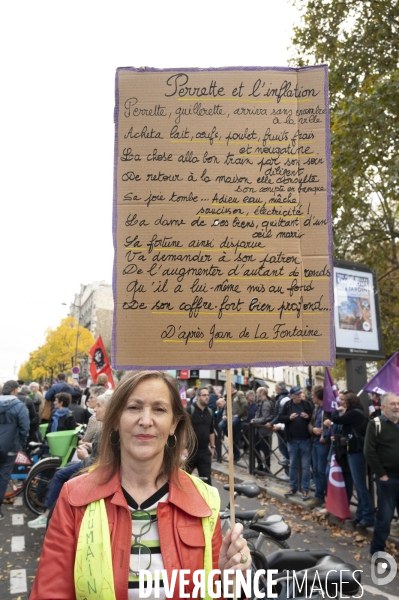 Perrette et l'inflation
Perrette, guillerette, arriva sans encombre
à la ville
Acheta lait, œufs, poulet, fruits frais
et nougatine
La chose alla bon train par son sein
De retour à la maison elle consulte
son compte en banque
Sa joie tombe... Adieu eau, mâche
saucisson, électricité !
La dame de ces biens, quittant d'un
œil marri
Sa fortune ainsi disparue
Va demander à son patron
De l'augmenter d'autant de ronds
Qu'il a lui-même mis au fond
De son coffre-fort bien profond...
D'après Jean de La Fontaine
Humain
DIVERGENCE IMAGES
d